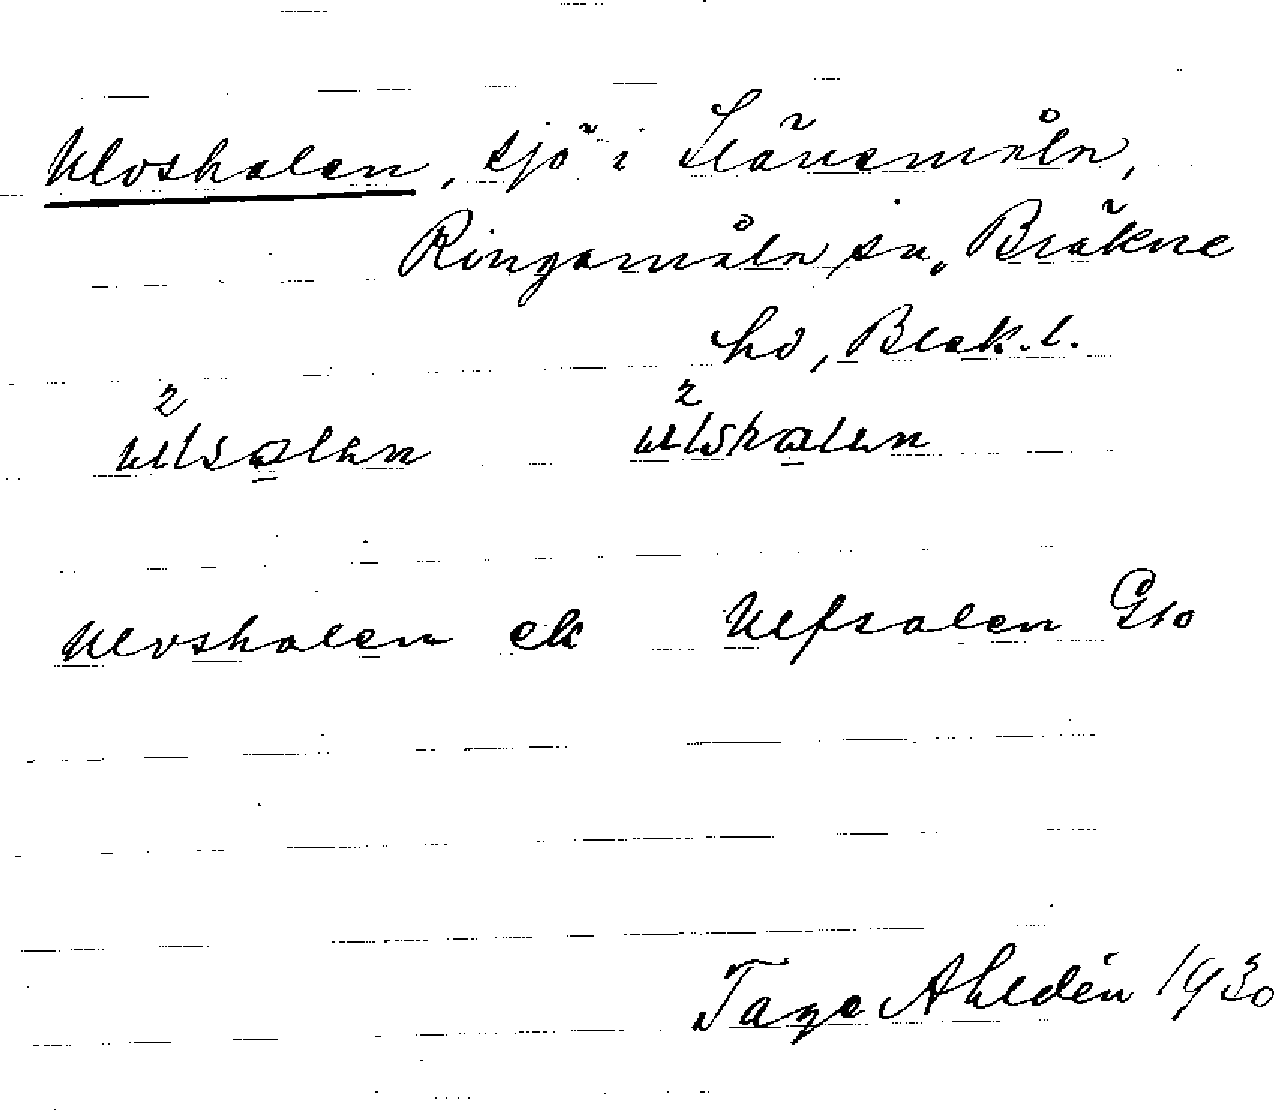 Ulvshalen, sjö i Grävsmåla,
Ringamåla sn, Bräkne
hd, Blek. l.
2 2
ulsalen ulshalen
Ulvshalen ek Ulfsalen G10
Tage Ahldén 1930